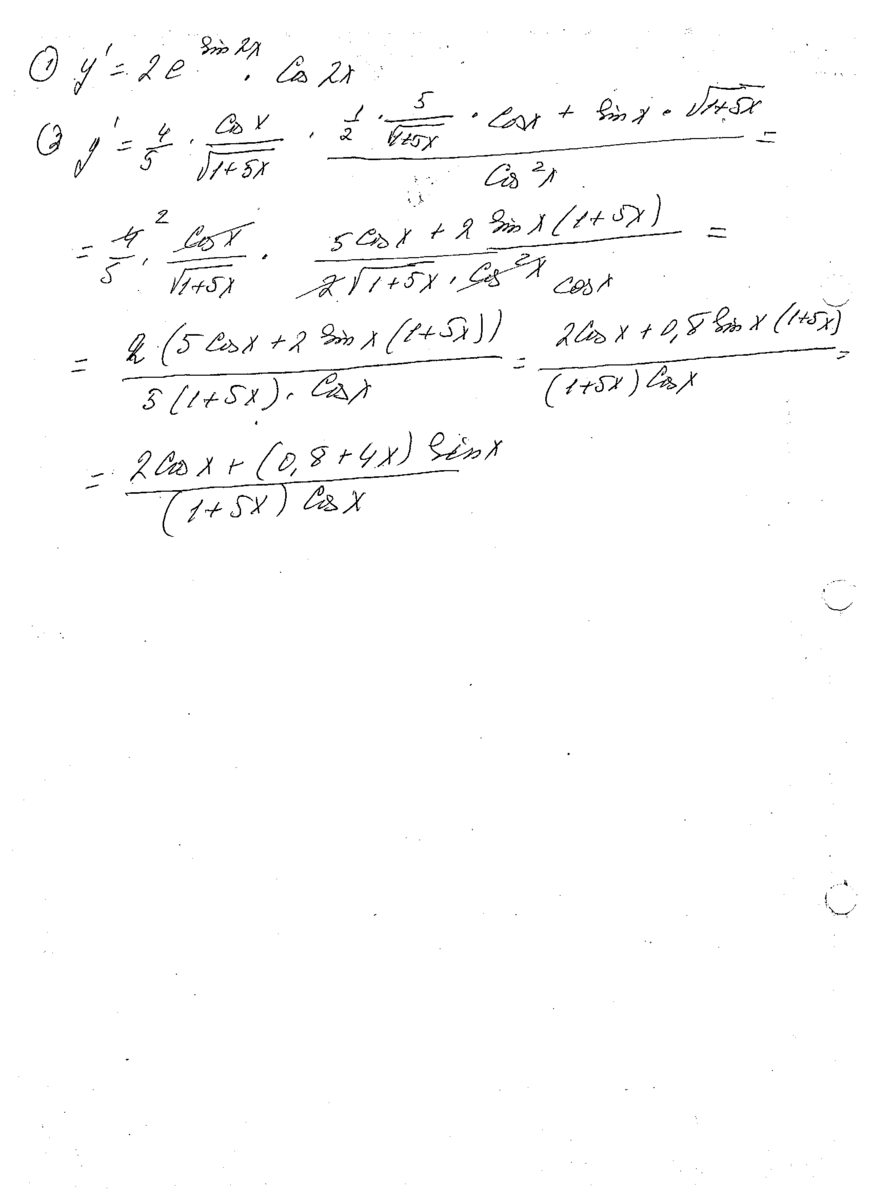 ① y' = 2e^{sin 2x} · Cos 2x
② y' = 4/5 · Cos x/√(1+5x) · (1/2 · 5/√(1+5x) · Cos x + sin x · √(1+5x))/Cos²x =
= 4/5 · 2 Cos x/√(1+5x) · (5 Cos x + 2 Sin x (1+5x))/(2√(1+5x) · Cos²x) cos x =
= 2 (5 Cos x + 2 Sin x (1+5x))/(5 (1+5x) · Cos x) = (2 Cos x + 0,8 Sin x (1+5x))/((1+5x) Cos x) =
= (2 Cos x + (0,8 + 4x) Sin x)/((1+5x) Cos x)